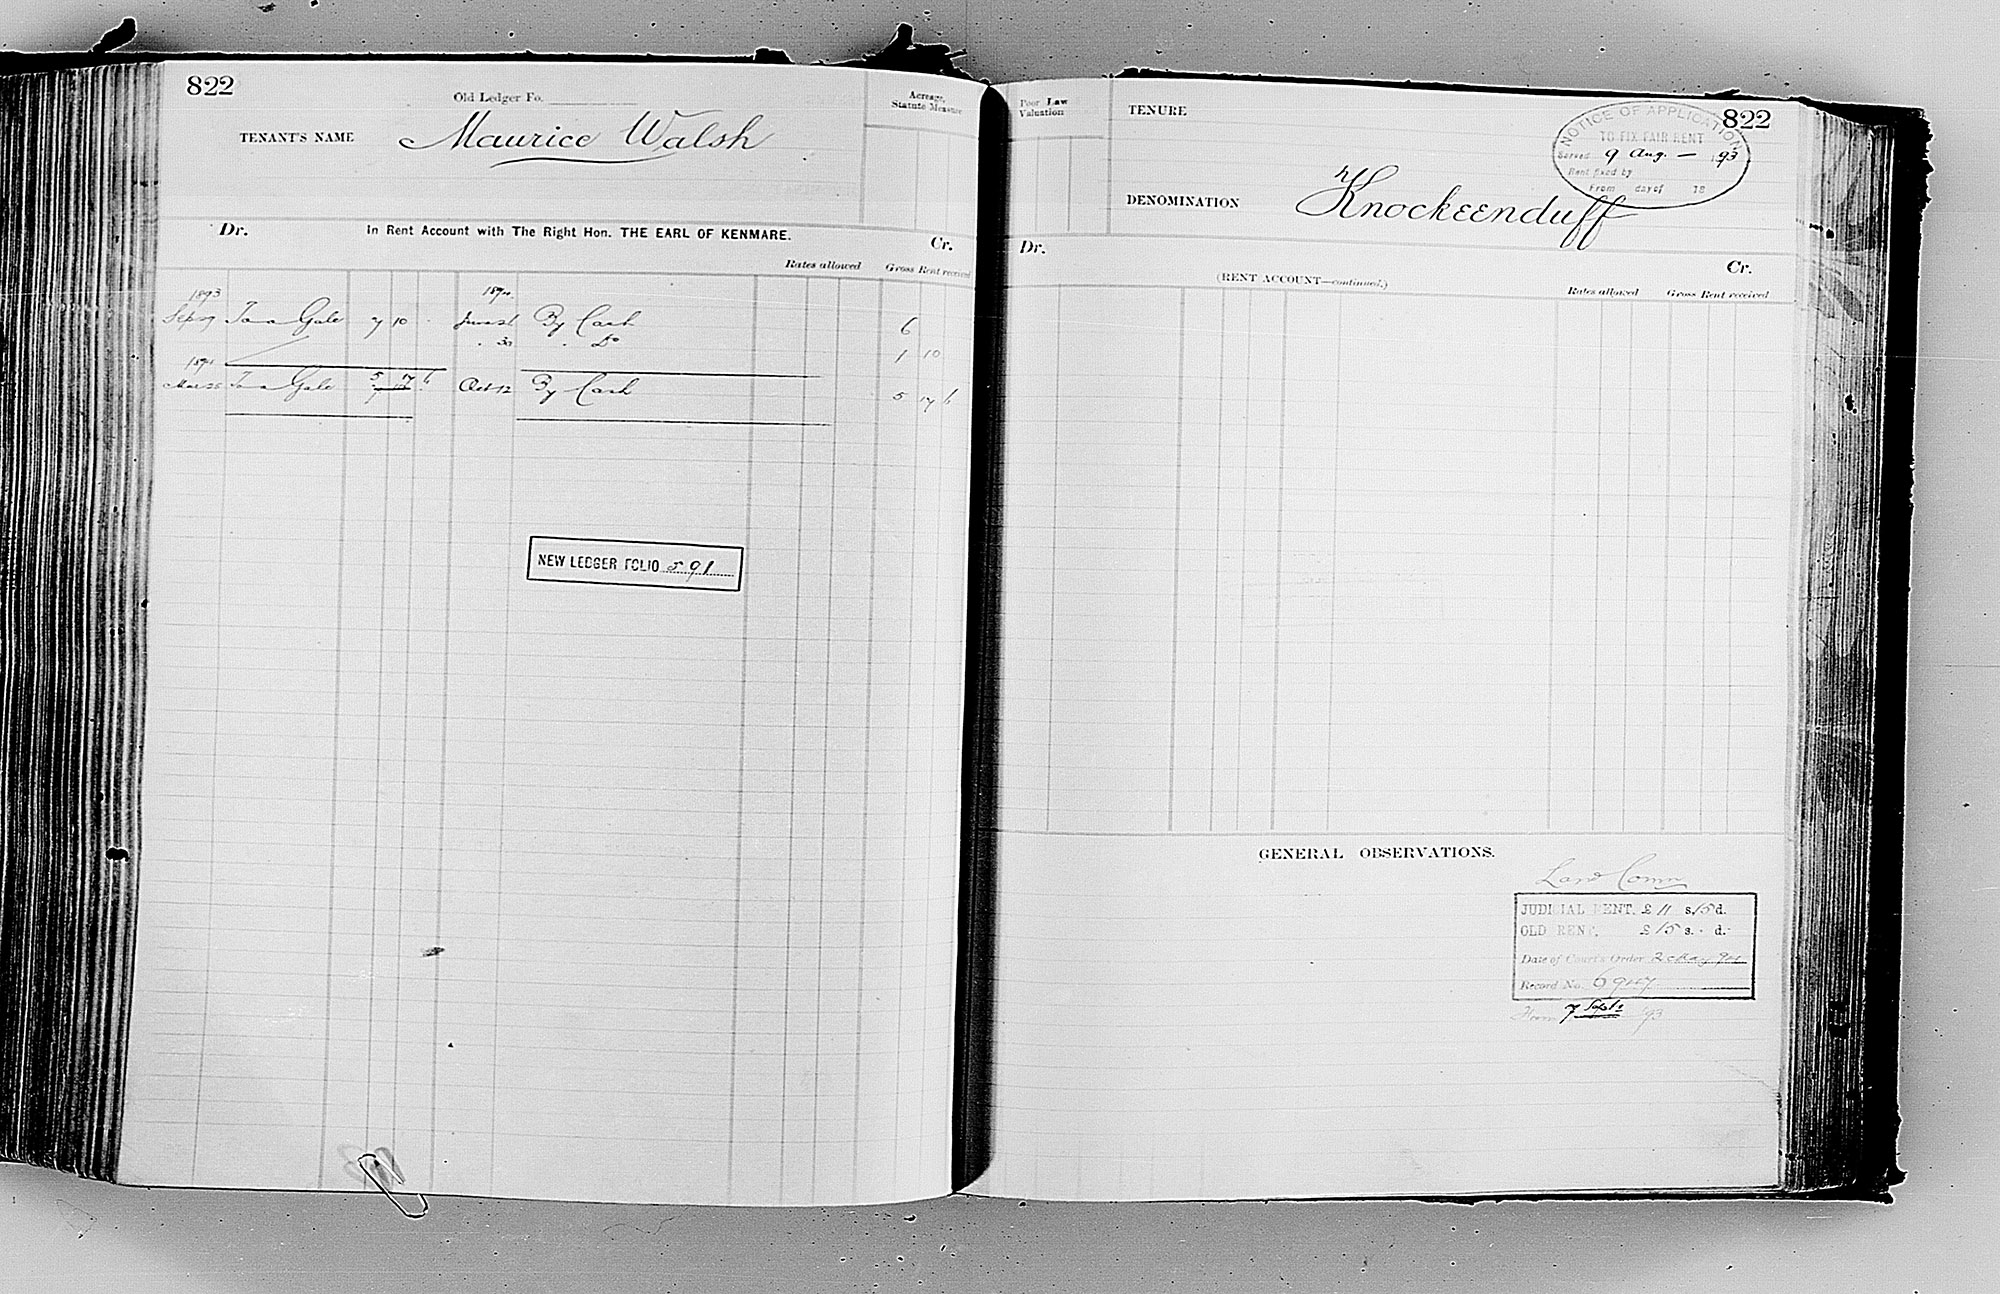 822
Old Ledger Fo.
Acreage, Statute Measure
TENANT'S NAME Maurice Walsh
Dr. In Rent Account with The Right Hon. THE EARL OF KENMARE. Cr.
Rates allowed Gross Rent received
1893 1894
Sep 29 To a Gale 7 10 . By Cash 6
" 30 " Do 1 10
1894
Mar 25 To a Gale 5 17 6 Oct 12 By Cash 5 17 6
NEW LEDGER FOLIO 591
Poor Law Valuation
TENURE
822
NOTICE OF APPLICATION
TO FIX FAIR RENT
Served 9 Aug. — 1893
Rent fixed by
From day of 18
DENOMINATION Knockeenduff
Dr. Cr.
(RENT ACCOUNT—continued.)
Rates allowed Gross Rent received
GENERAL OBSERVATIONS.
Land Comn
JUDICIAL RENT. £ 11 s. 15 d.
OLD RENT. £ 15 s. - d. -
Date of Court's Order
Record No.
From Sept 93